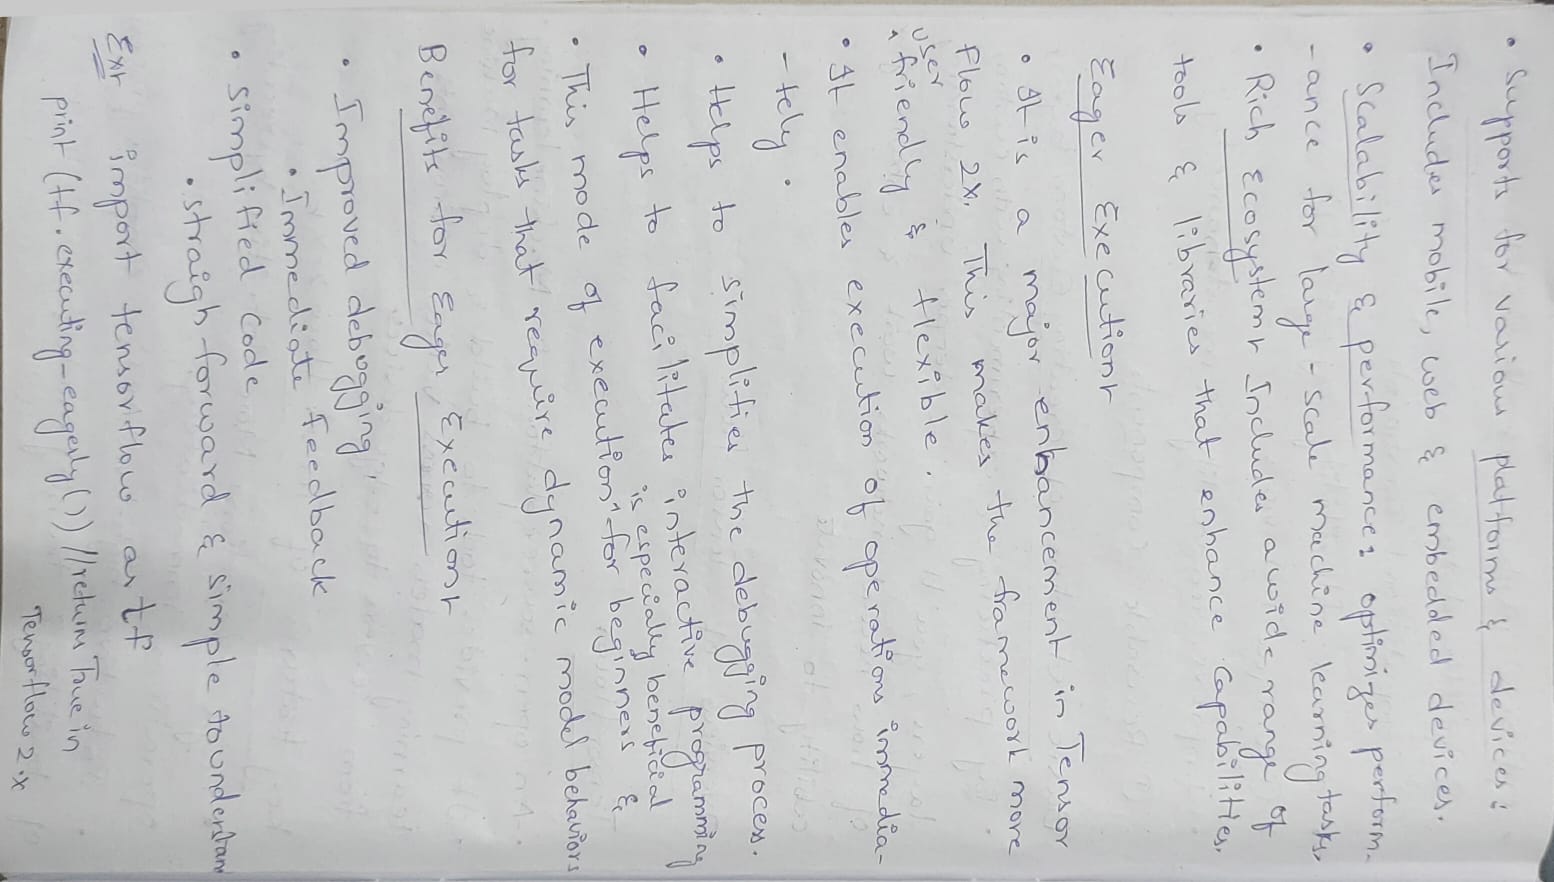 • Supports for various platforms & devices :
Includes mobile, web & embedded devices.
• Scalability & performance : optimizes perform-
- ance for large - scale machine learning tasks.
• Rich Ecosystem Includes a wide range of
tools & libraries that enhance capabilities.
Eager Execution
• It is a major enhancement in Tensor
Flow 2x. This makes the framework more
user
friendly & flexible.
• It enables execution of operations immedia-
- tely.
• Helps to simplifies the debugging process.
• Helps to facilitates interactive programming
is especially beneficial
• This mode of execution for beginners &
for tasks that require dynamic model behaviors
Benefits for Eager Execution
• Improved debogging
• Immediate Feedback
• Simplified code
• straigh-forward & simple to understan
Ex import tensorflow as tf
print (tf.executing-eagerly()) //returns True in
Tensorflow 2.x